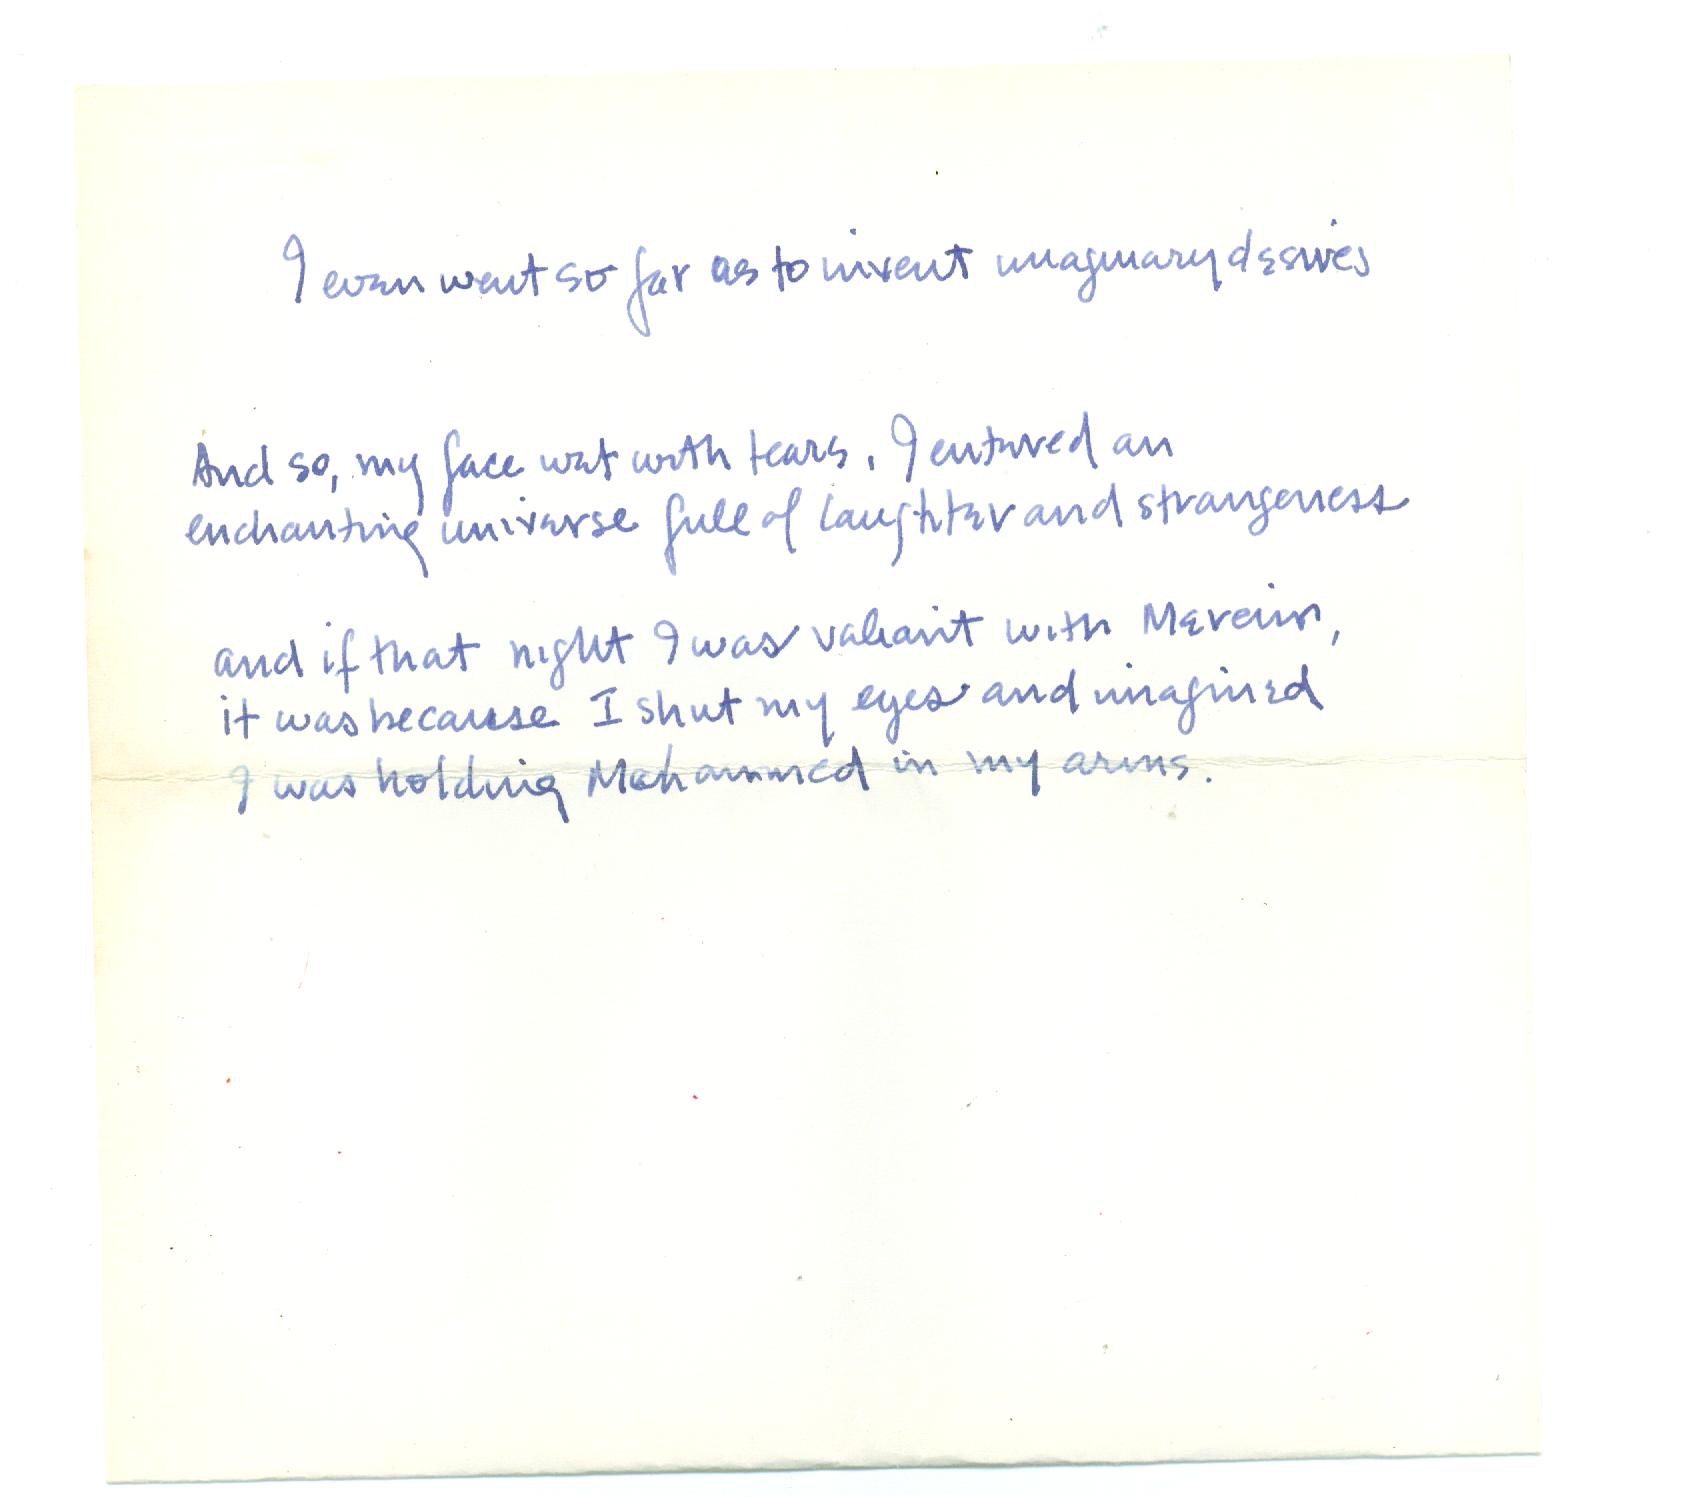 I even went so far as to invent imaginary desires
And so, my face wet with tears, I entered an
enchanting universe full of laughter and strangeness
and if that night I was valiant with
it was because I shut my eyes and imagined
I was holding Mohammed in my arms.